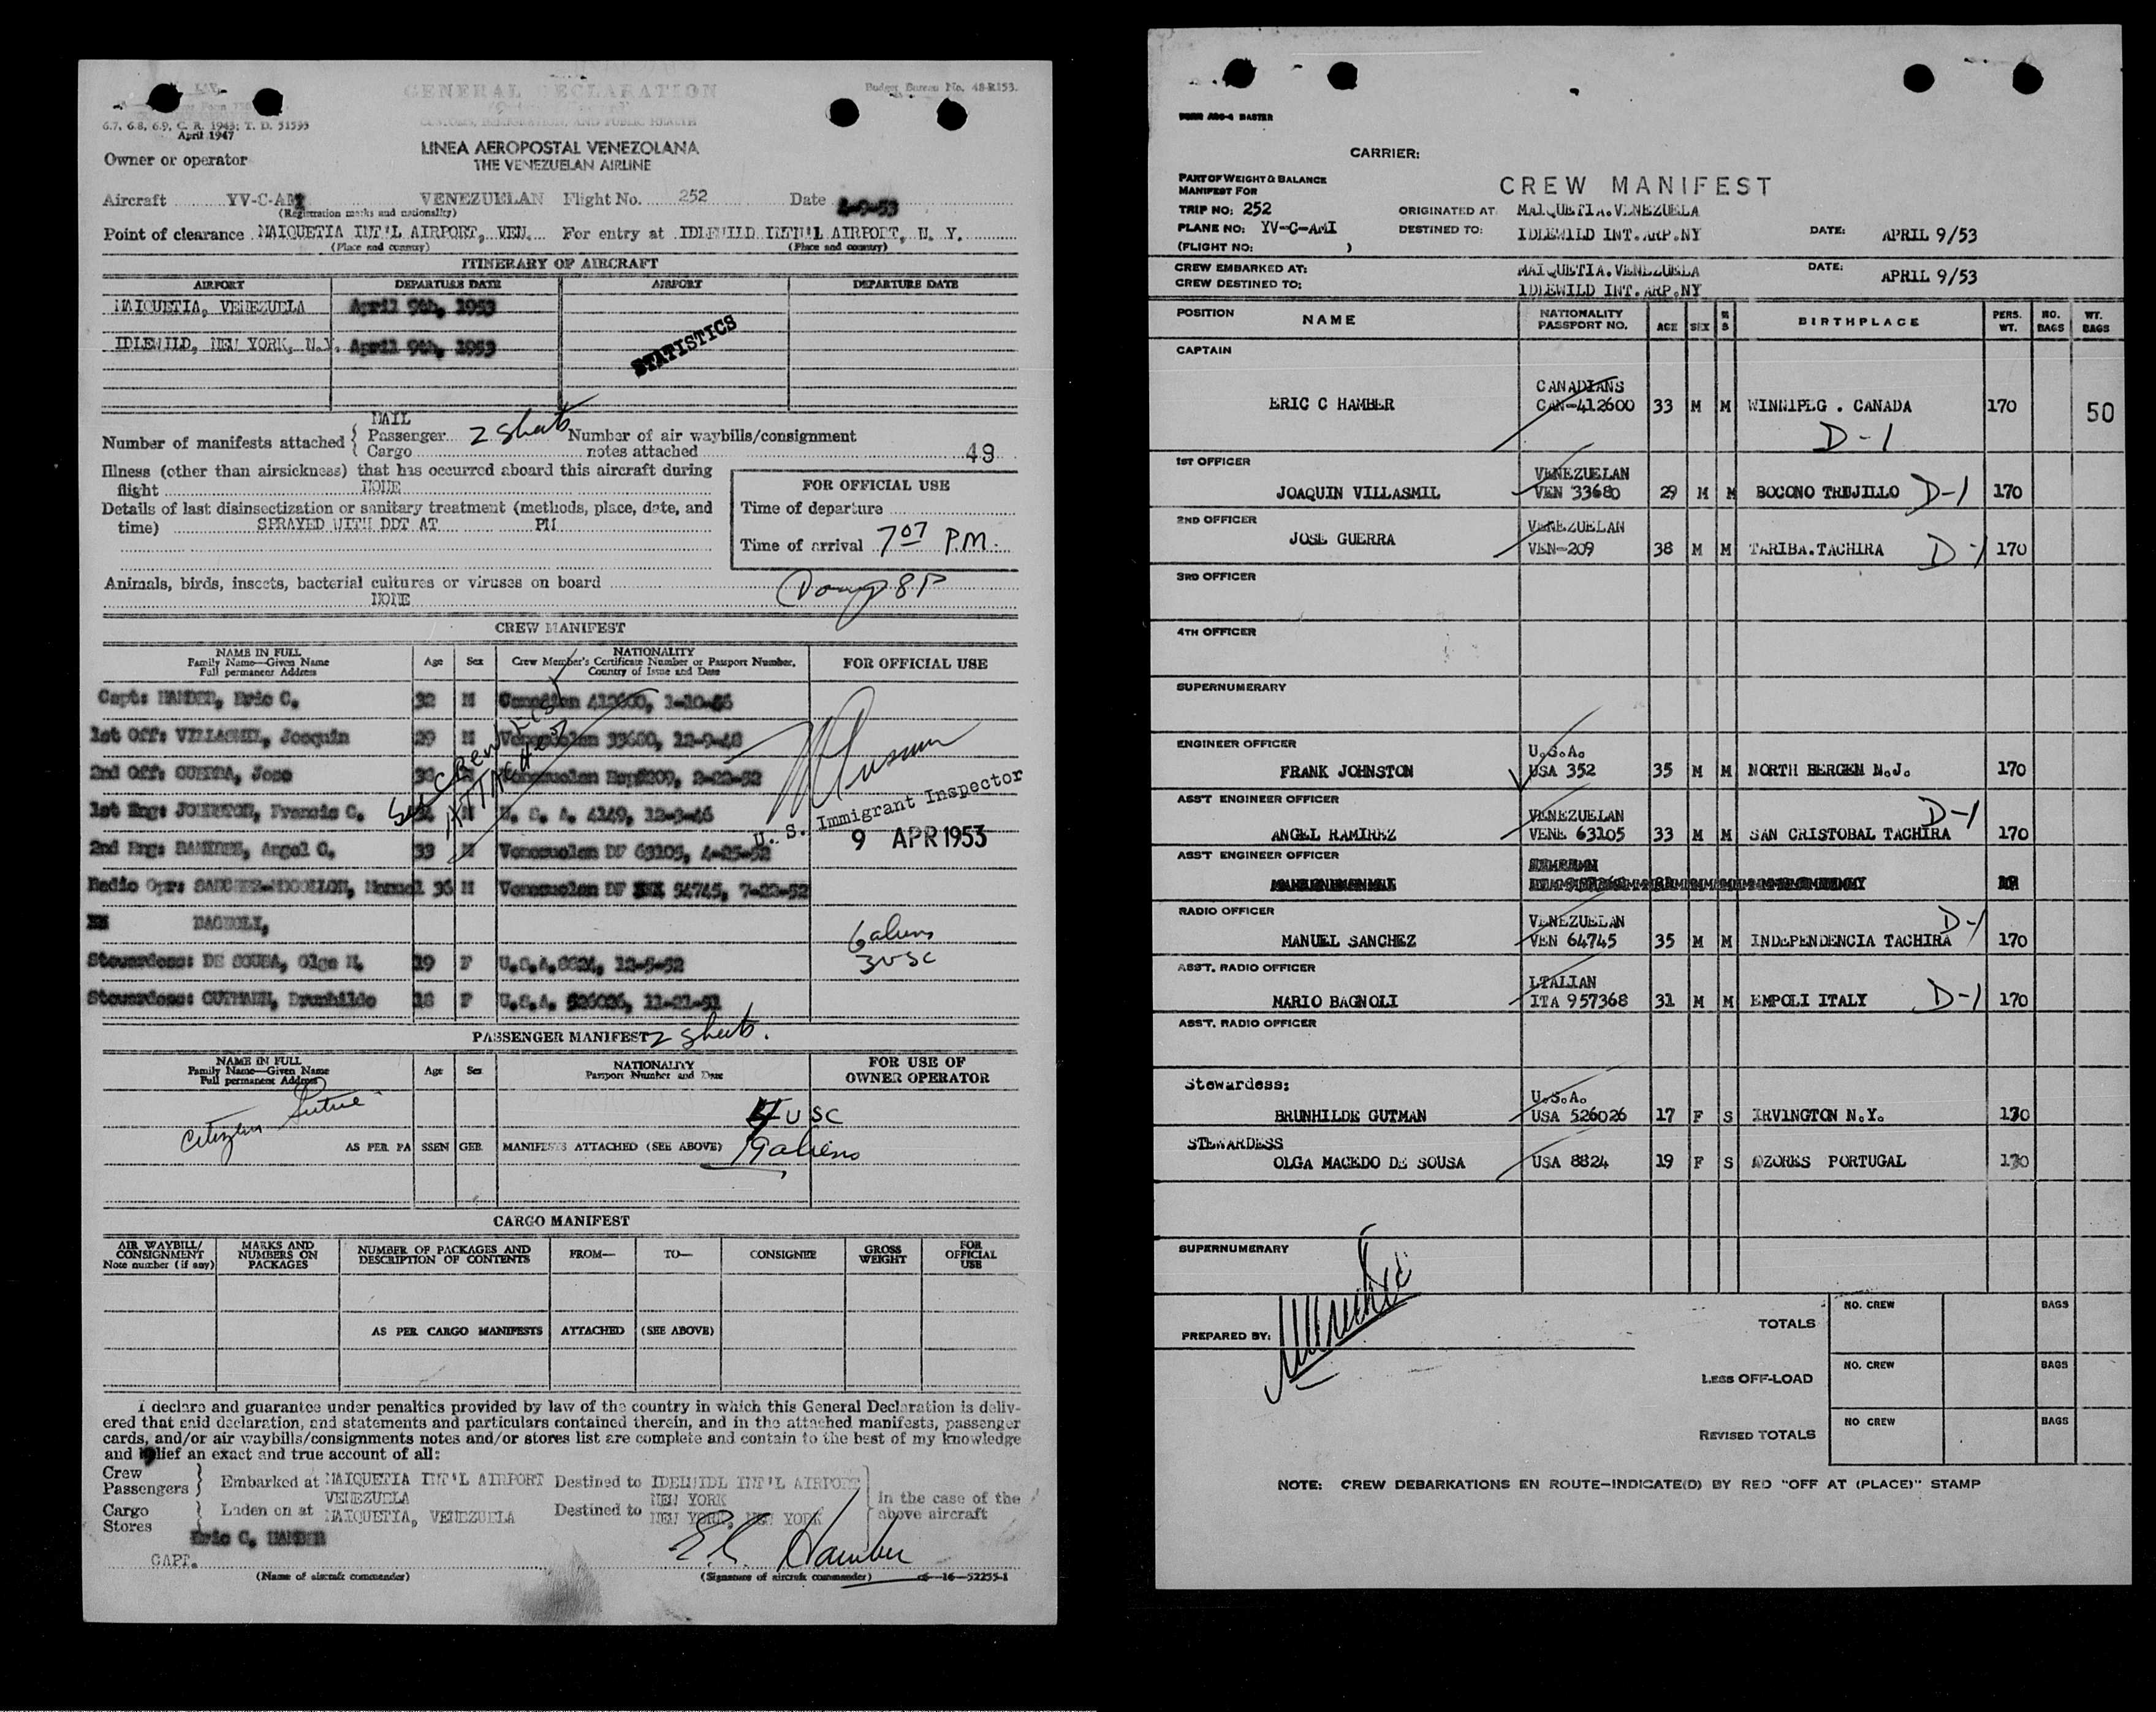 GENERAL DECLARATION
Budget Bureau No. 48-R153.
CUSTOMS, IMMIGRATION, AND PUBLIC HEALTH
6.7, 6.8, 6.9, C. R. 1943; T. D. 51593
April 1947
LINEA AEROPOSTAL VENEZOLANA
THE VENEZUELAN AIRLINE
Owner or operator
Aircraft YV-C-AMI VENEZUELAN Flight No. 252 Date 4-9-53
(Registration marks and nationality)
Point of clearance MAIQUETIA INT'L AIRPORT, VEN. For entry at IDLEWILD INT'L AIRPORT, N. Y.
(Place and country) (Place and country)
ITINERARY OF AIRCRAFT
AIRPORT DEPARTURE DATE AIRPORT DEPARTURE DATE
MAIQUETIA, VENEZUELA April 9th, 1953
IDLEWILD, NEW YORK, N.Y. April 9th, 1953
STATISTICS
MAIL
Number of manifests attached { Passenger 2 sheets Number of air waybills/consignment
Cargo notes attached 49
Illness (other than airsickness) that has occurred aboard this aircraft during
flight NONE
Details of last disinsectization or sanitary treatment (methods, place, date, and
time) SPRAYED WITH DDT AT PM
FOR OFFICIAL USE
Time of departure
Time of arrival 7 07 P.M.
Animals, birds, insects, bacterial cultures or viruses on board
NONE
8P
CREW MANIFEST
NAME IN FULL
Family Name—Given Name
Full permanent Address
Age Sex
NATIONALITY
Crew Member's Certificate Number or Passport Number,
Country of Issue and Date
FOR OFFICIAL USE
Capt: HAMBER, Eric C. 32 M Canadian 412600, 1-10-56
1st Off: VILLASMIL, Joaquin 29 M Venezuelan 33680, 12-9-48
2nd Off: GUERRA, Jose 38 M Venezuelan 209, 2-22-52
1st Eng: JOHNSTON, Francis C. 34 M U. S. A. 4149, 12-3-46
2nd Eng: RAMIREZ, Angel C. 33 M Venezuelan DF 63105, 4-25-52
Radio Opr: SANCHEZ-MOGOLLON, Manuel 36 M Venezuelan DF 54745, 7-22-52
BAGNOLI,
Stewardess: DE SOUSA, Olga M. 19 F U.S.A. 8824, 12-5-52
Stewardess: GUTMANN, Brunhilde 18 F U.S.A. 526026, 11-21-51
See CREW LIST
ATTACHED
U. S. Immigrant Inspector
9 APR 1953
6 aliens
3 USC
PASSENGER MANIFEST 2 sheets.
NAME IN FULL
Family Name—Given Name
Full permanent Address
Age Sex
NATIONALITY
Passport Number and Date
FOR USE OF
OWNER OPERATOR
citizen
4 USC
AS PER PASSENGER MANIFESTS ATTACHED (SEE ABOVE) 19 aliens
CARGO MANIFEST
AIR WAYBILL/
CONSIGNMENT
Note number (if any)
MARKS AND
NUMBERS ON
PACKAGES
NUMBER OF PACKAGES AND
DESCRIPTION OF CONTENTS
FROM— TO— CONSIGNEE
GROSS
WEIGHT
FOR
OFFICIAL
USE
AS PER CARGO MANIFESTS ATTACHED (SEE ABOVE)
I declare and guarantee under penalties provided by law of the country in which this General Declaration is deliv-
ered that said declaration, and statements and particulars contained therein, and in the attached manifests, passenger
cards, and/or air waybills/consignments notes and/or stores list are complete and contain to the best of my knowledge
and belief an exact and true account of all:
Crew
Passengers } Embarked at MAIQUETIA INT'L AIRPORT Destined to IDELWIDL INT'L AIRPORT
VENEZUELA NEW YORK
Cargo
Stores } Laden on at MAIQUETIA, VENEZUELA Destined to NEW YORK, NEW YORK
in the case of the
above aircraft
Eric C. HAMBER
CAPT.
E.C. Hamber
(Name of aircraft commander) (Signature of aircraft commander) 16—52255-1
FORM ACS-4 MASTER
CARRIER:
PART OF WEIGHT & BALANCE
MANIFEST FOR
CREW MANIFEST
TRIP NO: 252 ORIGINATED AT: MAIQUETIA.VENEZUELA
PLANE NO: YV-C-AMI DESTINED TO: IDLEWILD INT.ARP.NY DATE: APRIL 9/53
(FLIGHT NO: )
CREW EMBARKED AT: MAIQUETIA.VENEZUELA DATE: APRIL 9/53
CREW DESTINED TO: IDLEWILD INT.ARP.NY
POSITION NAME NATIONALITY PASSPORT NO. AGE SEX M S BIRTHPLACE PERS. WT. NO. BAGS WT. BAGS
CAPTAIN
CANADIANS
ERIC C HAMBER CAN-412600 33 M M WINNIPEG . CANADA 170 50
D-1
1ST OFFICER
VENEZUELAN
JOAQUIN VILLASMIL VEN 33680 29 M M BOCONO TRUJILLO D-1 170
2ND OFFICER
VENEZUELAN
JOSE GUERRA VEN-209 38 M M TARIBA.TACHIRA D-1 170
3RD OFFICER
4TH OFFICER
SUPERNUMERARY
ENGINEER OFFICER
U.S.A.
FRANK JOHNSTON USA 352 35 M M NORTH BERGEN N.J. 170
ASS'T ENGINEER OFFICER
VENEZUELAN D-1
ANGEL RAMIREZ VENE 63105 33 M M SAN CRISTOBAL TACHIRA 170
ASS'T ENGINEER OFFICER
RADIO OFFICER
VENEZUELAN D-1
MANUEL SANCHEZ VEN 64745 35 M M INDEPENDENCIA TACHIRA 170
ASS'T. RADIO OFFICER
LTALIAN
MARIO BAGNOLI ITA 957368 31 M M EMPOLI ITALY D-1 170
ASS'T. RADIO OFFICER
Stewardess:
U.S.A.
BRUNHILDE GUTMAN USA 526026 17 F S IRVINGTON N.Y. 130
STEWARDESS
OLGA MACEDO DE SOUSA USA 8824 19 F S AZORES PORTUGAL 130
SUPERNUMERARY
PREPARED BY:
TOTALS NO. CREW BAGS
LESS OFF-LOAD NO. CREW BAGS
REVISED TOTALS NO CREW BAGS
NOTE: CREW DEBARKATIONS EN ROUTE-INDICATE(D) BY RED "OFF AT (PLACE)" STAMP